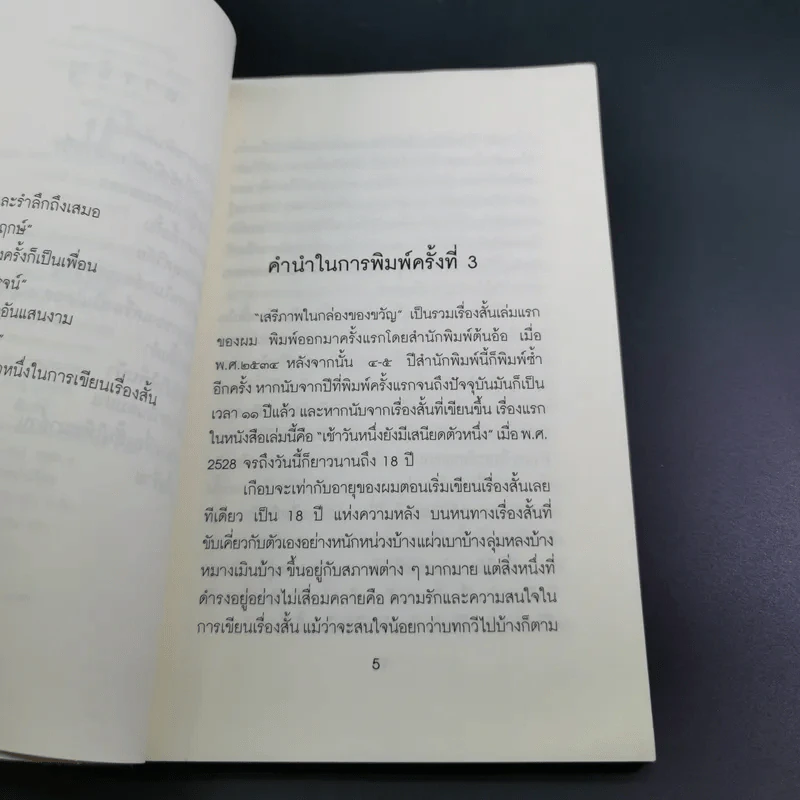 ละรำลึกถึงเสมอ
ฤกษ์"
งครั้งก็เป็นเพื่อน
จน์"
อันแสนงาม
"
หนึ่งในการเขียนเรื่องสั้น
คำนำในการพิมพ์ครั้งที่ 3
"เสรีภาพในกล่องของขวัญ" เป็นรวมเรื่องสั้นเล่มแรก
ของผม พิมพ์ออกมาครั้งแรกโดยสำนักพิมพ์ต้นอ้อ เมื่อ
พ.ศ.๒๕๓๔ หลังจากนั้น ๔-๕ ปีสำนักพิมพ์นี้ก็พิมพ์ซ้ำ
อีกครั้ง หากนับจากปีที่พิมพ์ครั้งแรกจนถึงปัจจุบันมันก็เป็น
เวลา ๑๑ ปีแล้ว และหากนับจากเรื่องสั้นที่เขียนขึ้น เรื่องแรก
ในหนังสือเล่มนี้คือ "เช้าวันหนึ่งยังมีเสนียดตัวหนึ่ง" เมื่อ พ.ศ.
2528 จรถึงวันนี้ก็ยาวนานถึง 18 ปี
เกือบจะเท่ากับอายุของผมตอนเริ่มเขียนเรื่องสั้นเลย
ทีเดียว เป็น 18 ปี แห่งความหลัง บนหนทางเรื่องสั้นที่
ขับเคี่ยวกับตัวเองอย่างหนักหน่วงบ้างแผ่วเบาบ้างลุ่มหลงบ้าง
หมางเมินบ้าง ขึ้นอยู่กับสภาพต่าง ๆ มากมาย แต่สิ่งหนึ่งที่
ดำรงอยู่อย่างไม่เสื่อมคลายคือ ความรักและความสนใจใน
การเขียนเรื่องสั้น แม้ว่าจะสนใจน้อยกว่าบทกวีไปบ้างก็ตาม
5